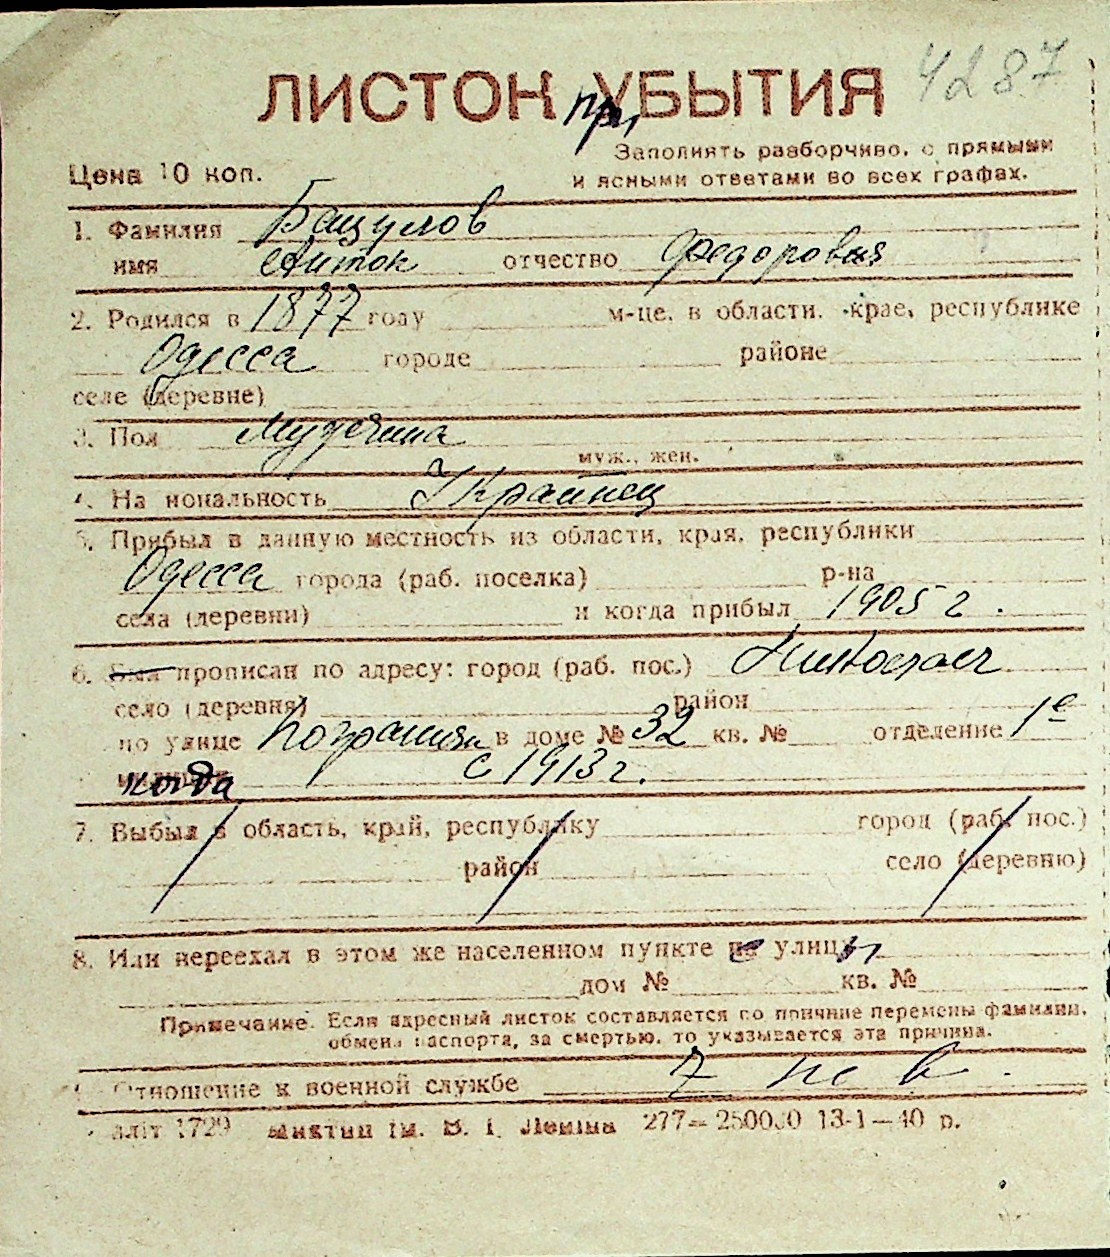 4287
ЛИСТОК при УБЫТИЯ
Заполнять разборчиво, с прямыми
Цена 10 коп.
и ясными ответами во всех графах.
1. Фамилия Бацулов
имя Антон отчество Федоровия
2. Родился в 1877 году м-це, в области, крае, республике
Одесса городе районе
селе (деревне)
3. Пол Мудчина
муж., жен.
4. На иональность Украинец
5. Прибыл в данную местность из области, края, республики
Одесса города (раб. поселка) р-на
села (деревни) и когда прибыл 1905 г.
6. Был прописан по адресу: город (раб. пос.) Николаев
село (деревня) район
по улице Погранич в доме № 32 кв. № отделение 1е
когда с 1913 г.
7. Выбыл в область, край, республику город (раб. пос.)
район село (деревню)
8. Или переехал в этом же населенном пункте не улицы
дом № кв. №
Примечание. Если адресный листок составляется по причине перемены фамилии,
обмена паспорта, за смертью, то указывается эта причина.
Отношение к военной службе
літ 1729 ім. В. І. Леніна 277—250000 13-1—40 р.